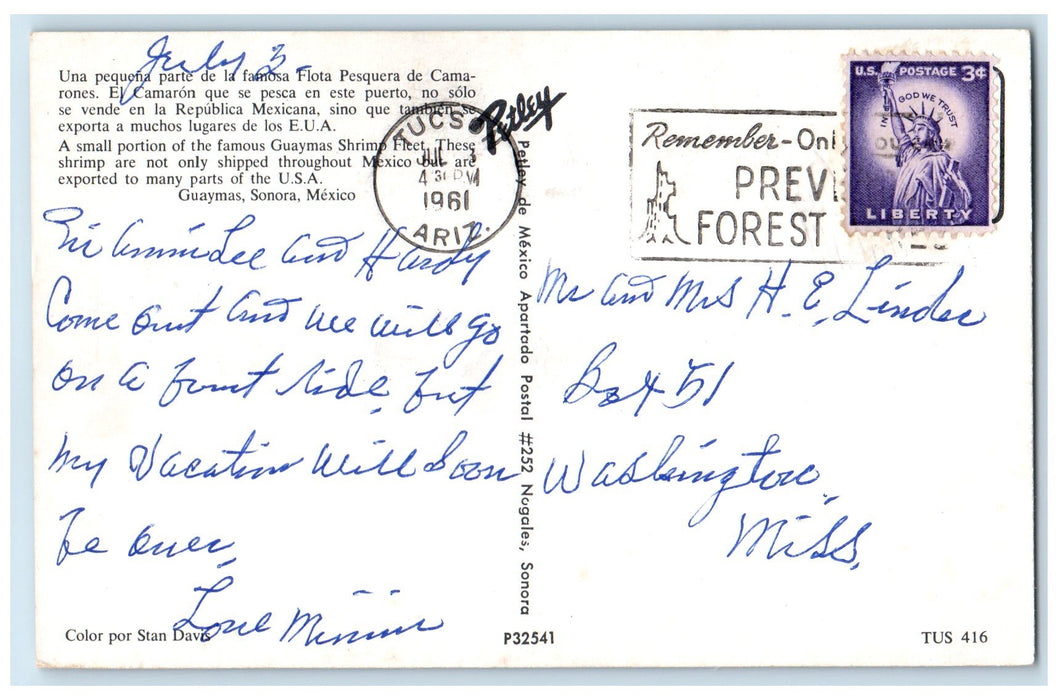 July 2-
Una pequeña parte de la famosa Flota Pesquera de Cama-
rones. El Camarón que se pesca en este puerto, no sólo
se vende en la República Mexicana, sino que también se
exporta a muchos lugares de los E.U.A.
A small portion of the famous Guaymas Shrimp Fleet. These
shrimp are not only shipped throughout Mexico but are
exported to many parts of the U.S.A.
Guaymas, Sonora, México
and Hardy
Come out and we will go
on a boat ride, but
my vacation will soon
be over,
Love Minnie
Color por Stan Davis
TUCSO
JUL 3
4 30 PM
1961
ARIZ.
Petley
Petley de México Apartado Postal #252 Nogales, Sonora
P32541
Remember-Only
PREV
FOREST
U.S. POSTAGE 3¢
IN GOD WE TRUST
LIBERTY
Mr and Mrs H. E. Linder
Box 51
Washington,
Miss,
TUS 416